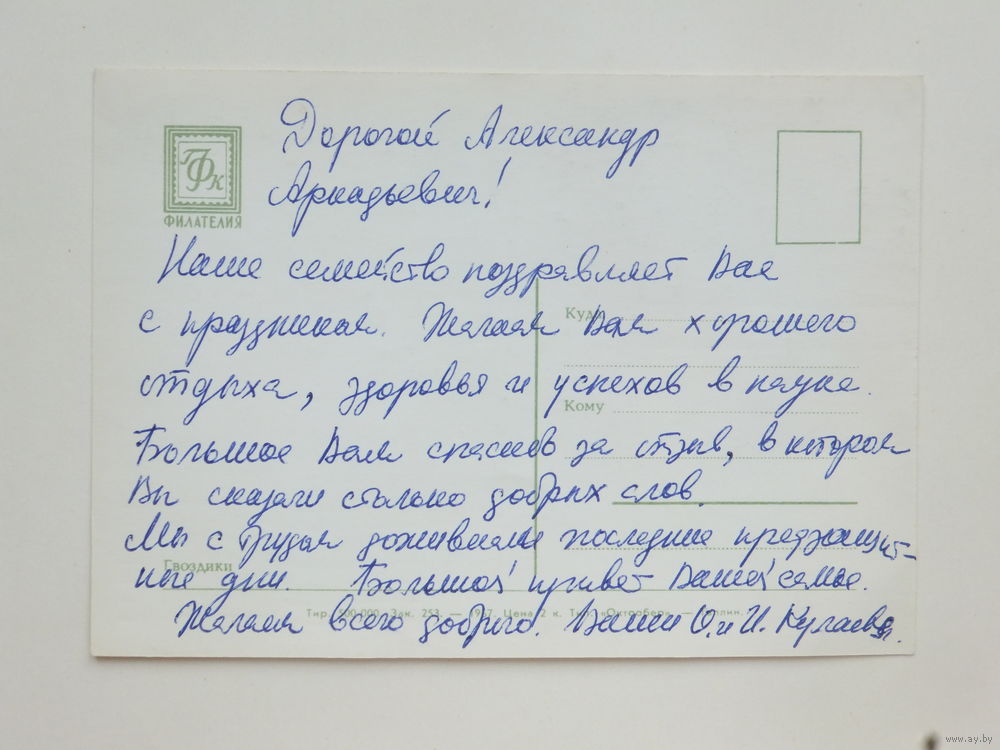 Дорогой Александр
Аркадьевич!
ФК
ФИЛАТЕЛИЯ
Наше семейство поздравляет Вас
с праздником. Желаем Вам хорошего
отдыха, здоровья и успехов в науке.
Большое Вам спасибо за отзыв, в котором
Вы сказали столько добрых слов.
Мы с трудом доживаем последние предзащит-
ные дни. Большой привет Вашей семье.
Желаем всего доброго. Ваши О. и И. Кулаевы.
Куда
Кому
Гвоздики
Тир. 500.000 Зак. 253. — Цена 2 к. Тип. «Октообер» —
www.ay.by